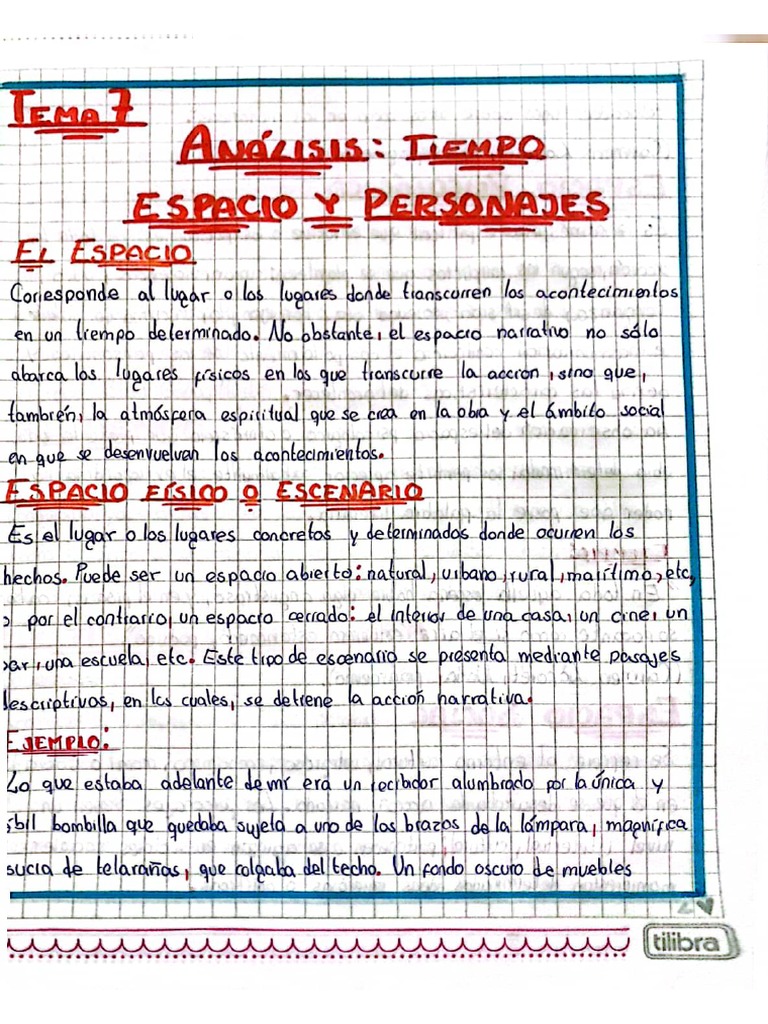 TEMA 7
ANÁLISIS: TIEMPO
ESPACIO Y PERSONAJES
EL ESPACIO
Corresponde al lugar o los lugares donde transcurren los acontecimientos
en un tiempo determinado. No obstante, el espacio narrativo no sólo
abarca los lugares físicos en los que transcurre la acción, sino que,
también, la atmósfera espiritual que se crea en la obra y el ámbito social
en que se desenvuelvan los acontecimientos.
ESPACIO FÍSICO O ESCENARIO
Es el lugar o los lugares concretos y determinados donde ocurren los
hechos. Puede ser un espacio abierto: natural, urbano, rural, marítimo, etc,
o por el contrario, un espacio cerrado: el interior de una casa, un cine, un
bar, una escuela, etc. Este tipo de escenario se presenta mediante pasajes
descriptivos, en los cuales, se detiene la acción narrativa.
EJEMPLO:
Lo que estaba adelante de mí era un recibidor alumbrado por la única y
ébil bombilla que quedaba sujeta a uno de los brazos de la lámpara, magnífica
sucia de telarañas, que colgaba del techo. Un fondo oscuro de muebles
tilibra